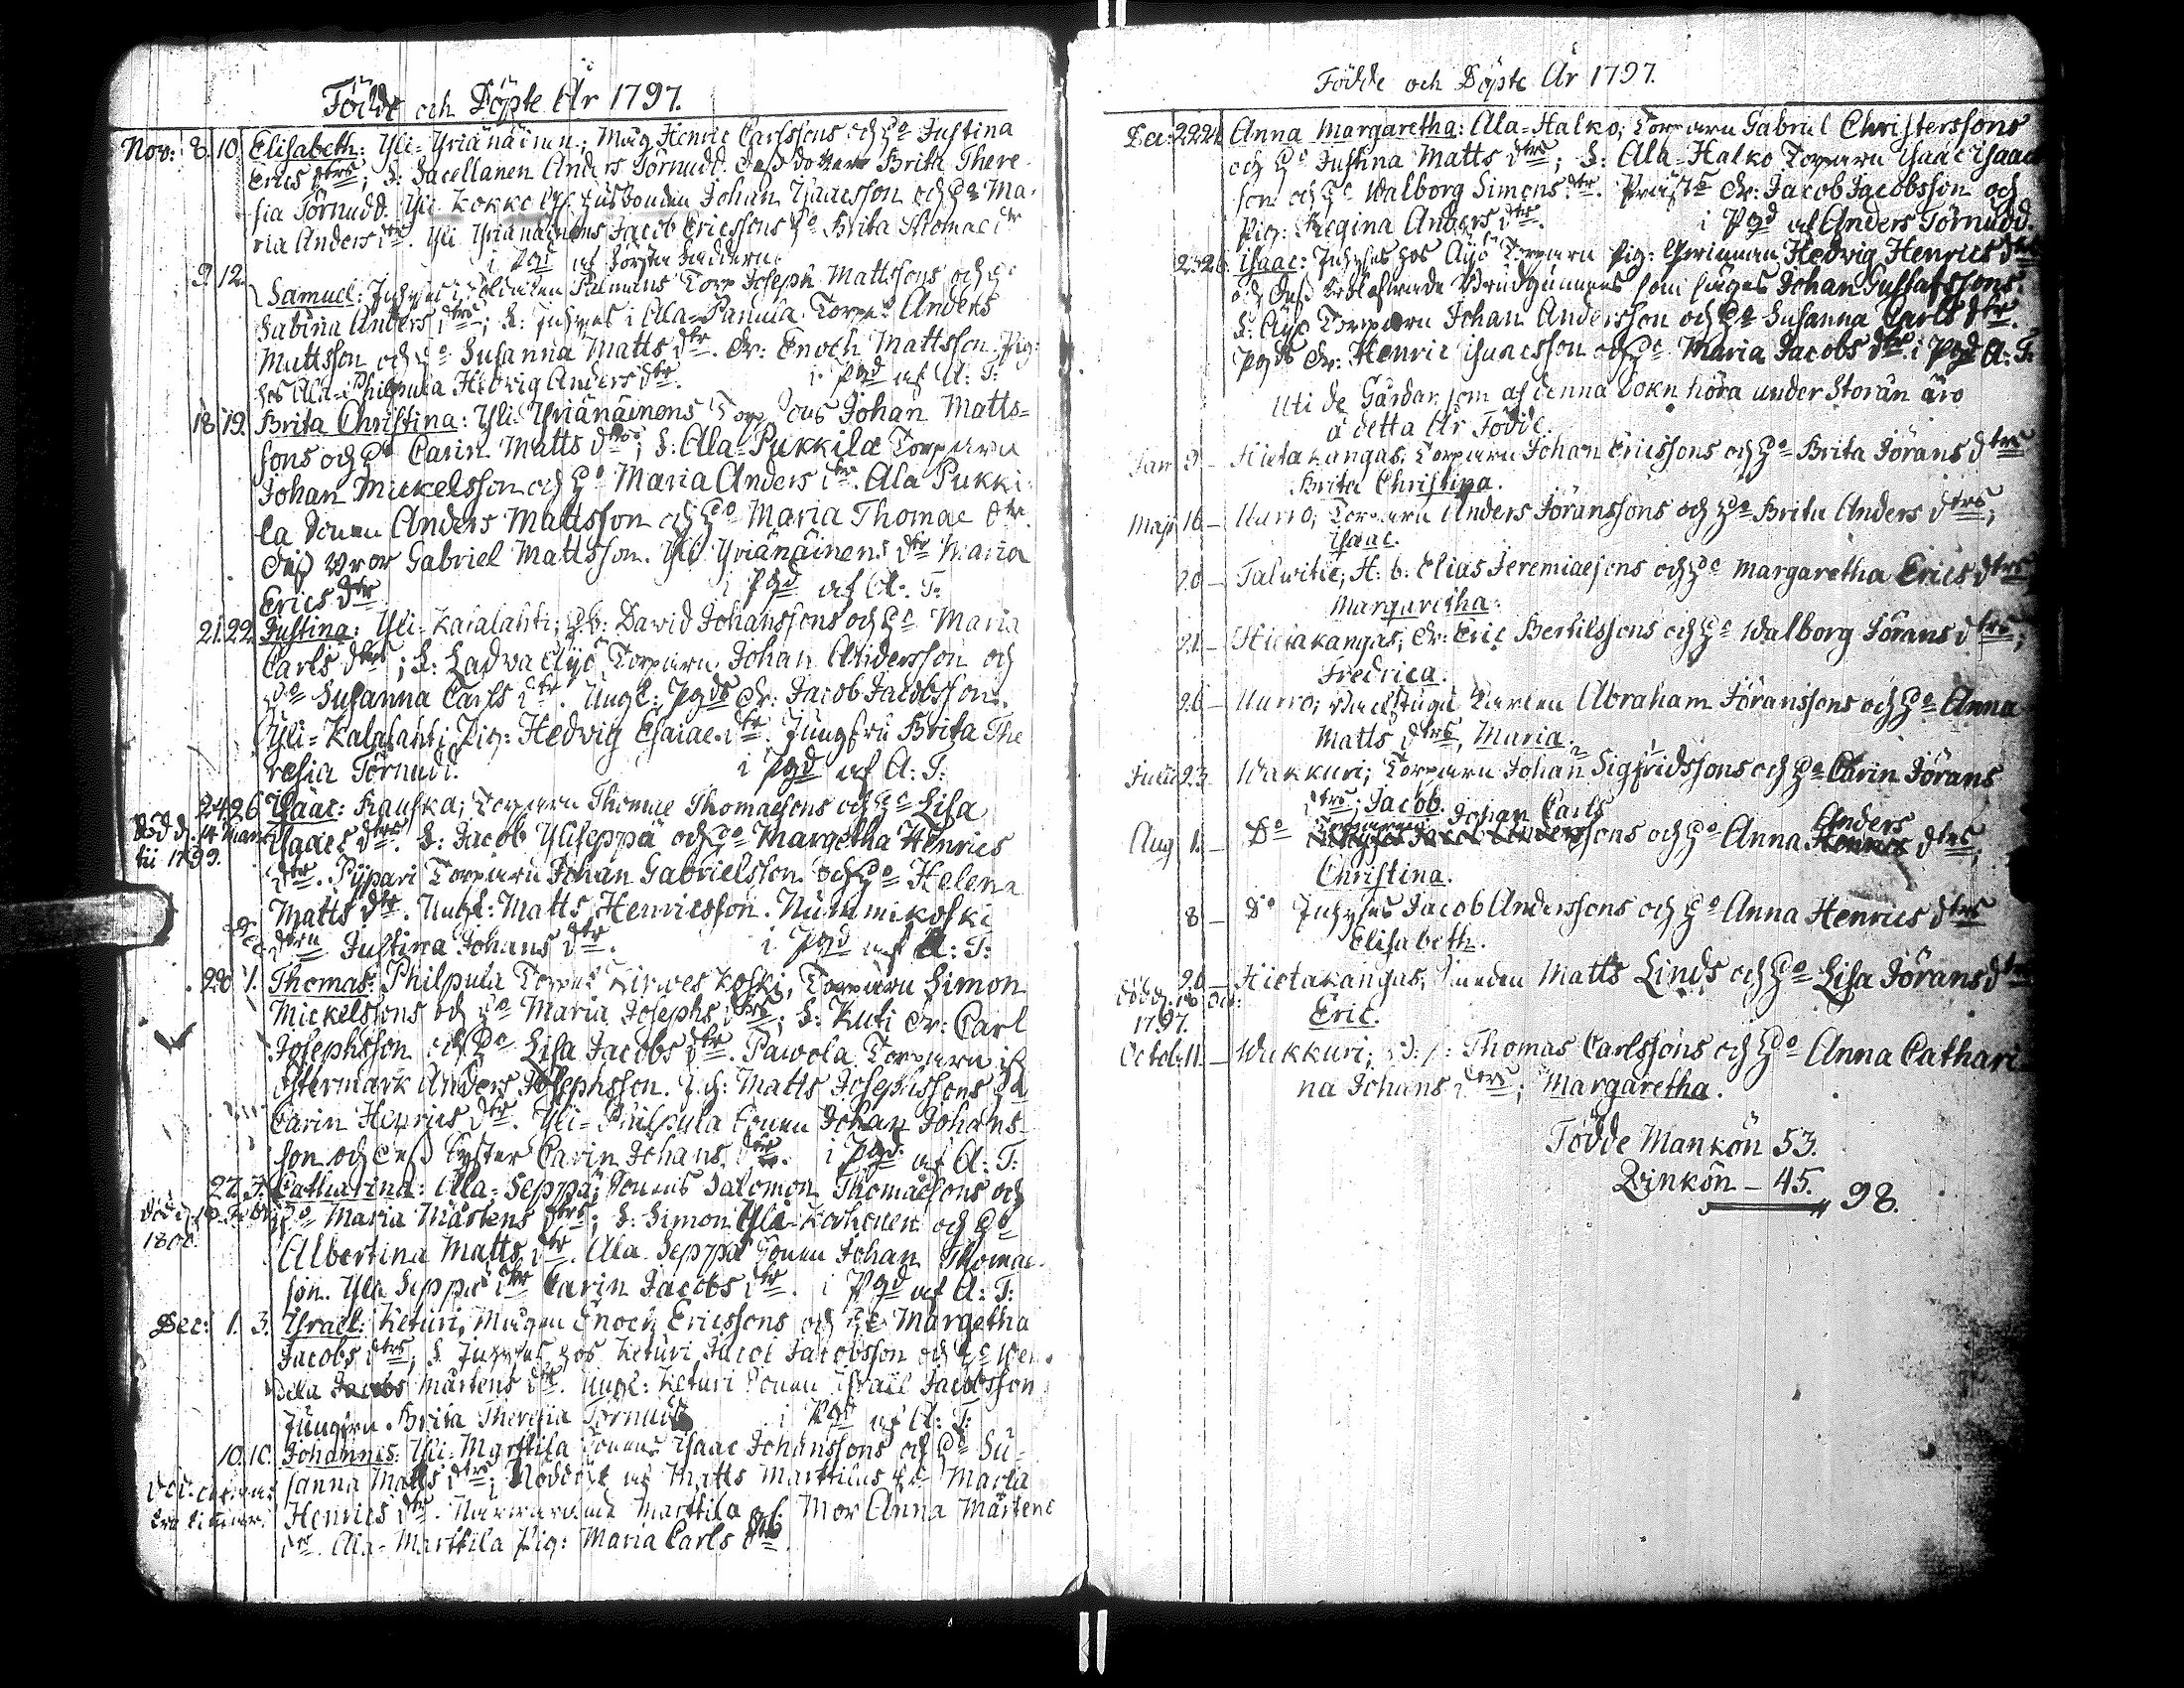 Födde och Döpte År 1797.
Nov: 8. 10. Elisabeth: Yli-Yriänäinen; Måg Henric Carlssons och H:o Justina
Erics dtrs; S: Sacellanen Anders Törnudd. Dess dotter Brita There-
sia Törnudd. Yli Kokko husbonden Johan Isaacsson och H:o Ma-
ria Anders dtr. Yli Yriänäinens Jacob Ericssons H:o Brita Thomae dtr
i Pgd af första faddern.
9. 12. Samuel: Inhyses i Soldaten Palmans Torp Joseph Mattssons och H:o
Sabina Anders dtrs; S: Inhyses i Ala-Pannula Torpet Anders
Mattsson och H:o Susanna Matts dtr. Dr: Enoch Mattsson. Pig:
hos Ala-Philpula Hedvig Anders dtr. i Pgd af A: T:
18. 19. Brita Christina: Yli-Yriänäinens Johan Matts-
sons och H:o Carin Matts dtrs; S: Ala-Pukkila Torparn
Johan Mickelsson och H:o Maria Anders dtr. Ala Pukki-
la Sonen Anders Mattsson och H:o Maria Thomae dtr.
Gabriel Mattsson. Yli Yriänäinens dtr Maria
Erics dtr. i Pgd af A: T:
21. 22. Justina: Yli-Kaialahti; David Johanssons och H:o Maria
Carls dtrs; S: Ladva Äyö Torparn Johan Andersson och
H:o Susanna Carls dtr. Ungf: Pgds Dr: Jacob Jacobsson.
Yli-Kaialahti Pig: Hedvig Esaiae dtr. Jungfru Brita The
resia Törnudd. i Pgd af A: T:
24. 26. Isaac: Kauska; Torparn Thomae Thomaesons och H:o Lisa
Död d. 14 Mar-
tii 1799.
Isaacs dtrs. S: Jacob Yliseppä och H:o Margetha Henrics
dtr. Pijpari Torparn Johan Gabrielsson och H:o Helena
Matts dtr. Ungk: Matts Henricsson. Nummikoski
Dec dtrn Justina Johans dtr. i Pgd af A: T:
28. 1. Thomas: Philpula Torpet Kirves Koski, Torparn Simon
Mickelssons och H:o Maria Josephs dtrs; S: Kuti Dr: Carl
Josephsson och H:o Lisa Jacobs dtr. Pawola Torparn
Östermark Anders Josephsson. Matts Josephssons H:o
Carin Henrics dtr. Yli-Philpula Sonen Johan Johans-
son och dess Syster Carin Johans dtr. i Pgd. af A: T:
27. 3. Catharina: Ala-Seppä; Sonens Salomon Thomaesons och
Död d. 10. Febr:
1800.
H:o Maria Mårtens dtrs; S: Simon Yli-Korhonen och H:o
Albertina Matts dtr. Ala-Seppä Sonen Johan Thomae-
son. Yli Seppä dtr Carin Jacobs dtr. i Pgd af A: T:
Dec: 1. 3. Israel: Keturi, Mågen Enoch Ericssons och H:o Margetha
Jacobs dtrs; S. Inhyses hos Keturi Jacob Jacobsson och H:o Wen-
dela Mårtens dtr. Ungk: Keturi Sonen Israel Jacobsson
Jungfru Brita Theresia Törnudd i Pgd af A: T:
10. 10. Johannes: Yli-Marttila Sonens Isaac Johanssons och H:o Su-
sanna Matts dtrs; Nöddöpt af Matts Marttilas H:o Maria
Henrics dtr. Närvarande Marttila Mor Anna Mårtens
dtr. Ala-Marttila Pig: Maria Carls dtr.
Födde och Döpte År 1797.
Dec: 22. 24. Anna Margaretha: Ala-Halko; Torparn Gabriel Christerssons
och H:o Justina Matts dtrs; S: Ala-Halko Torparn Isaac Isaac
son och H:o Walborg Simons dtr. Dr: Jacob Jacobsson och
Pig: Regina Anders dtr. i Pgd af Anders Törnudd.
25. 26. Isaac: Inhyses hos Äyö Torparn Pig: Hedvig Henrics dtrs
och dess trolofvade Brudgummes som säges Johan Gustafssons.
S: Äyö Torparn Johan Andersson och H:o Susanna Carls dtr.
Pgds Dr: Henric Isaacsson och H:o Maria Jacobs dtr. i Pgd A: T:
Uti de Gårdar som af denna Sokn höra under Storån äro
å detta År Födde.
Jan 9. – Hietakangas. Torparn Johan Ericssons och H:o Brita Jörans dtrs
Brita Christina.
Maji 16 – Uurro; Torparn Anders Jöranssons och H:o Brita Anders dtrs;
Isaac.
20 – Talwitie; H: b: Elias Jeremiaesons och H:o Margaretha Erics dtrs
Margaretha.
21 – Hietakangas; Dr: Eric Bertilssons och H:o Walborg Jörans dtrs;
Fredrica.
26 – Uurro; Backstugu Karlen Abraham Jöranssons och H:o Anna
Matts dtrs, Maria.
Julii 23. Wakkuri; Torparn Johan Sigfridssons och H:o Carin Jörans
dtrs; Jacob.
Johan Carls Anders
Aug 1. – D:o sons och H:o Anna Henrics dtrs,
Christina.
8 – D:o Inhyses Jacob Anderssons och H:o Anna Henrics dtrs
Elisabeth.
20 – Hietakangas; Smeden Matts Linds och H:o Lisa Jörans dtrs
Död d. 18 Oct:
1797.
Eric.
Octob: 11. – Wakkuri; Thomas Carlssons och H:o Anna Cathari
na Johans dtrs; Margaretha.
Födde Mankön 53.
Qvinkön – 45.
98.